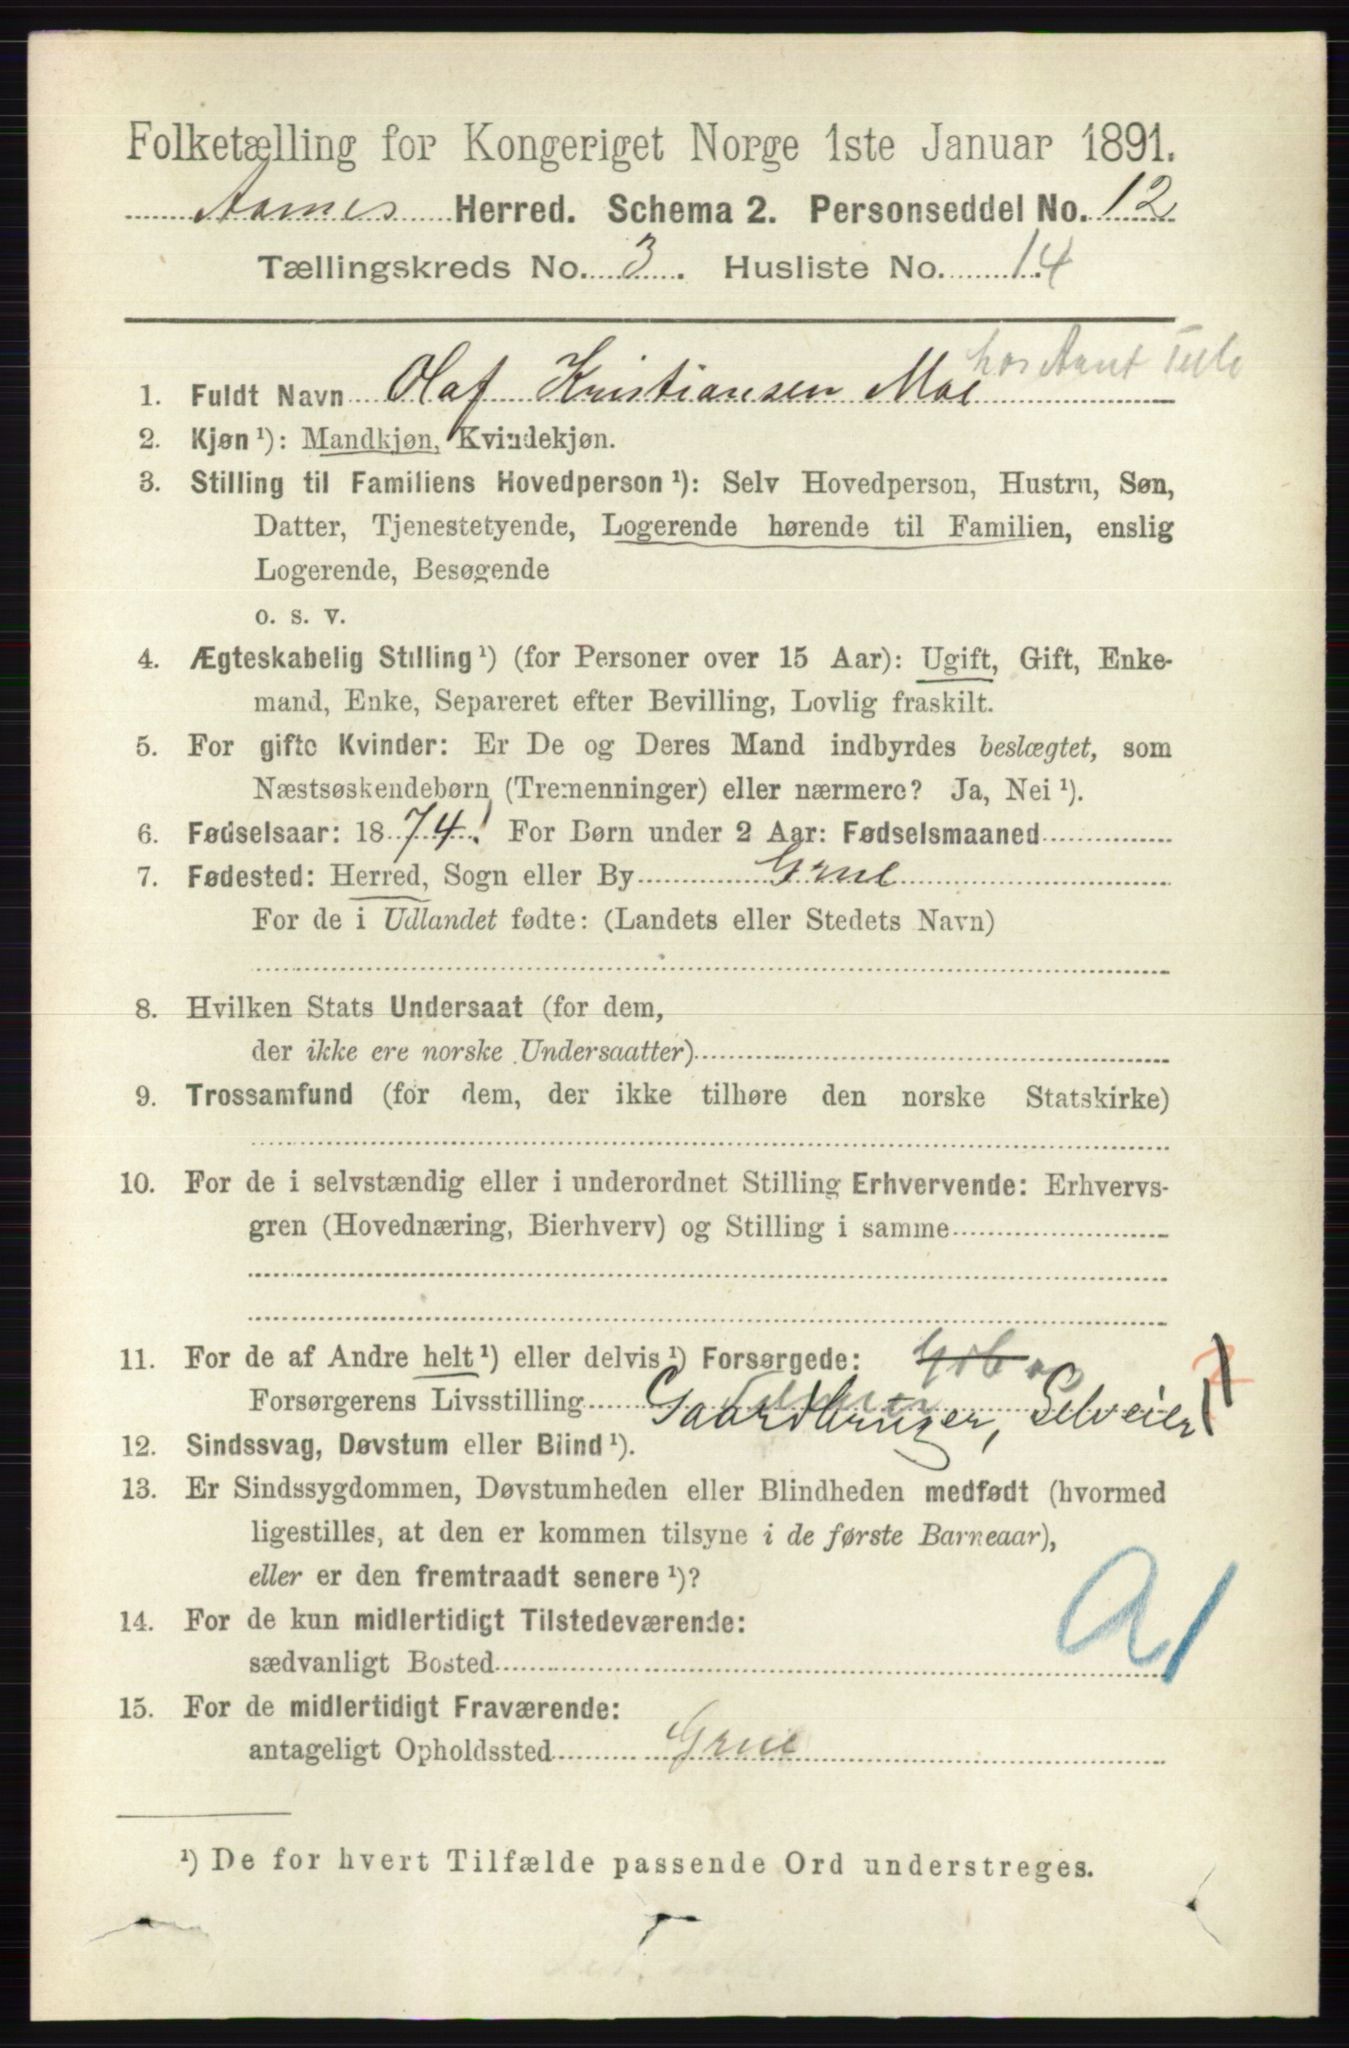 Folketælling for Kongeriget Norge 1ste Januar 1891.
Aasnes Herred. Schema 2. Personseddel No. 12
Tællingskreds No. 3. Husliste No. 14
hos
1. Fuldt Navn Olaf Kristiansen Moe
2. Kjøn¹): Mandkjøn, Kvindekjøn.
3. Stilling til Familiens Hovedperson¹): Selv Hovedperson, Hustru, Søn,
Datter, Tjenestetyende, Logerende hørende til Familien, enslig
Logerende, Besøgende
o. s. v.
4. Ægteskabelig Stilling¹) (for Personer over 15 Aar): Ugift, Gift, Enke-
mand, Enke, Separeret efter Bevilling, Lovlig fraskilt.
5. For gifte Kvinder: Er De og Deres Mand indbyrdes beslægtet, som
Næstsøskendebørn (Tremenninger) eller nærmere? Ja, Nei¹).
6. Fødselsaar: 1874. For Børn under 2 Aar: Fødselsmaaned
7. Fødested: Herred, Sogn eller By Grue
For de i Udlandet fødte: (Landets eller Stedets Navn)
8. Hvilken Stats Undersaat (for dem,
der ikke ere norske Undersaatter)
9. Trossamfund (for dem, der ikke tilhøre den norske Statskirke)
10. For de i selvstændig eller i underordnet Stilling Erhvervende: Erhvervs-
gren (Hovednæring, Bierhverv) og Stilling i samme
11. For de af Andre helt¹) eller delvis¹) Forsørgede:
Forsørgerens Livsstilling Gaardbruger, Selveier
12. Sindssvag, Døvstum eller Blind¹).
13. Er Sindssygdommen, Døvstumheden eller Blindheden medfødt (hvormed
ligestilles, at den er kommen tilsyne i de første Barneaar),
eller er den fremtraadt senere¹)?
14. For de kun midlertidigt Tilstedeværende:
sædvanligt Bosted
15. For de midlertidigt Fraværende:
antageligt Opholdssted Grue
¹) De for hvert Tilfælde passende Ord understreges.